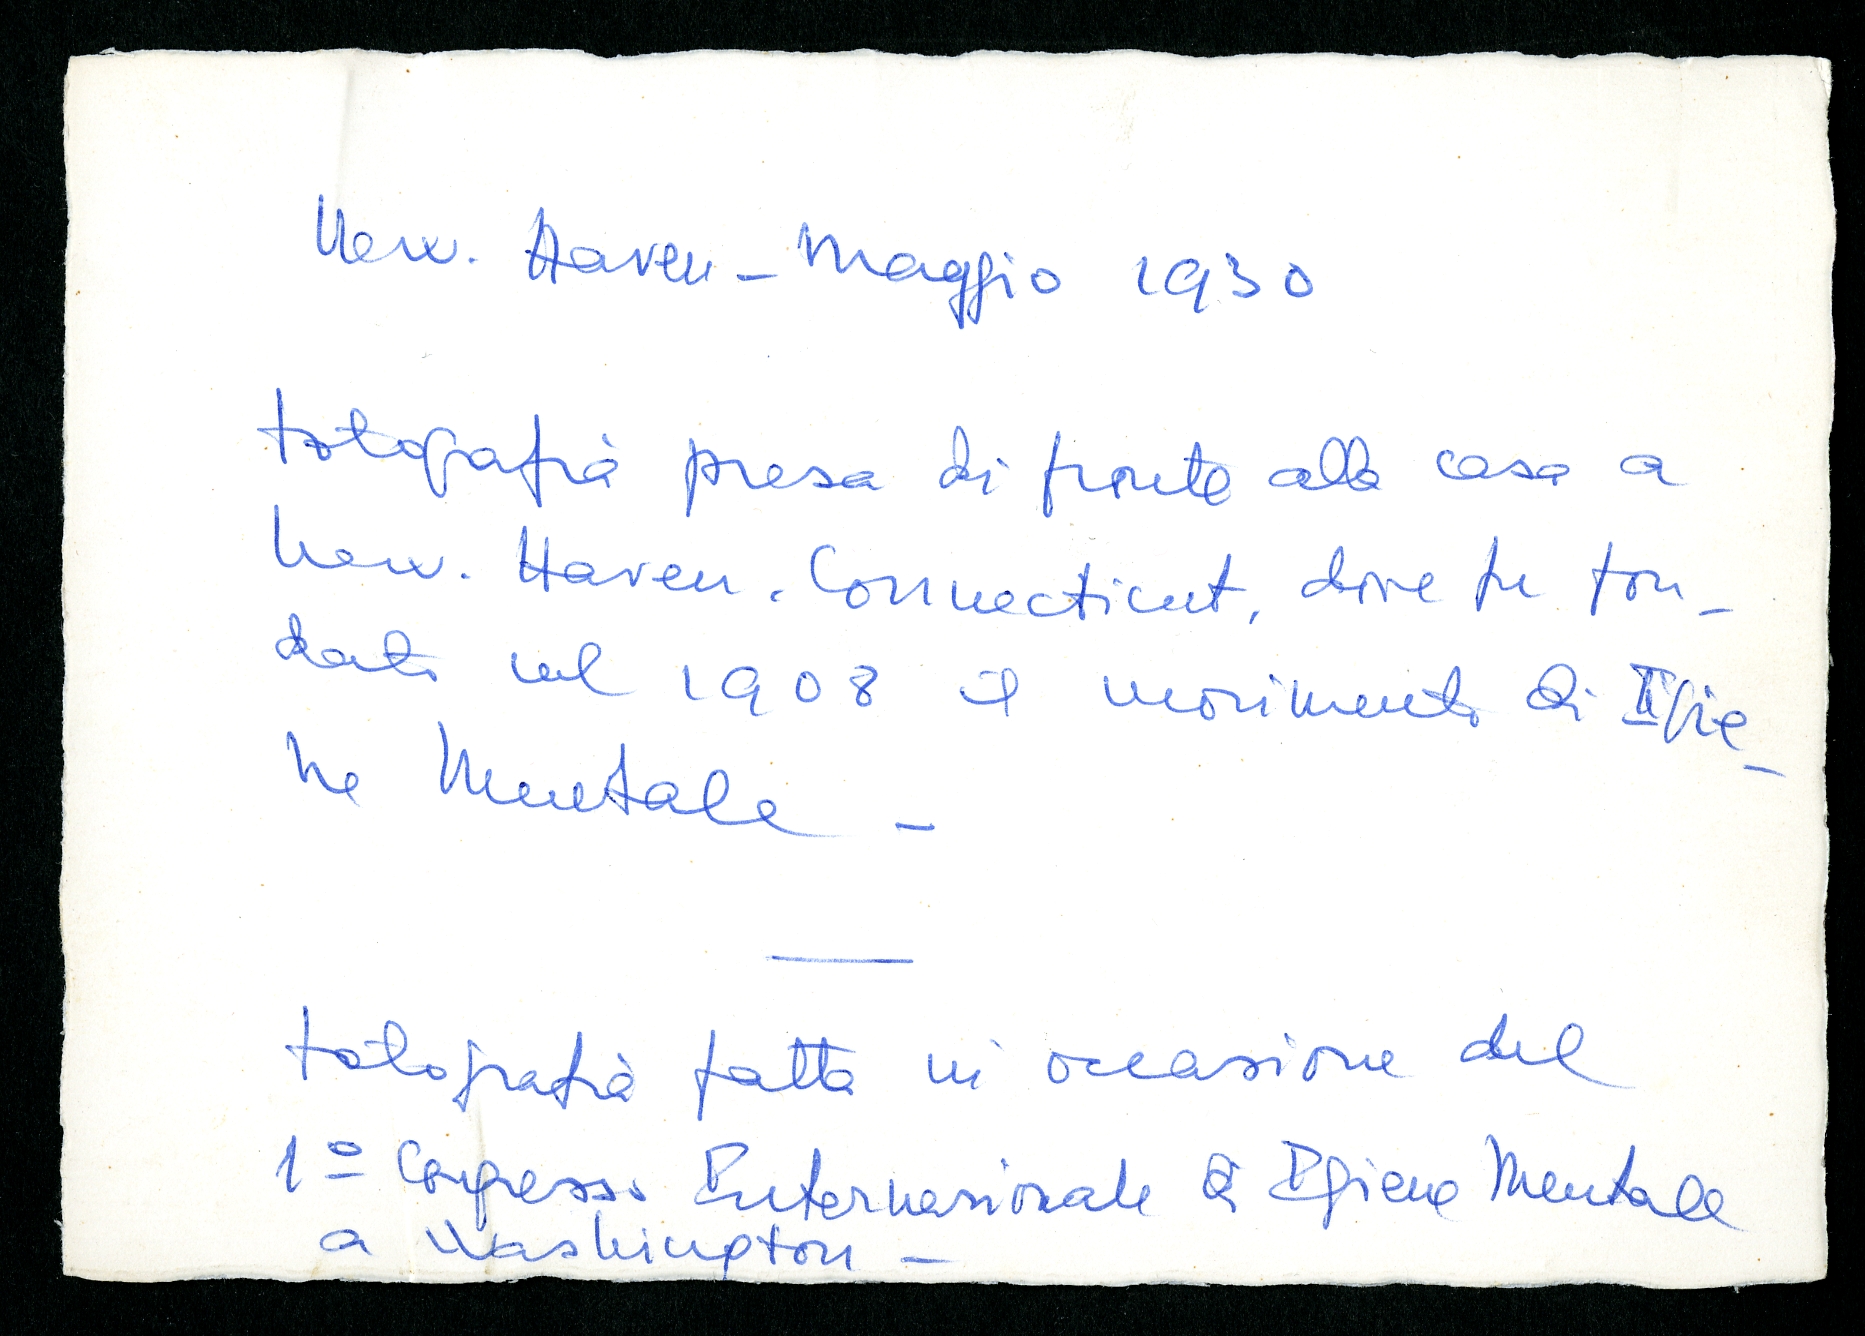 New. Haven - Maggio 1930
fotografia presa di fronte alla casa a
New. Haven. Connecticut, dove fu fon-
dato nel 1908 il movimento di Igie-
ne Mentale -
fotografia fatta in occasione del
1º Congresso Internazionale di Igiene Mentale
a Washington -